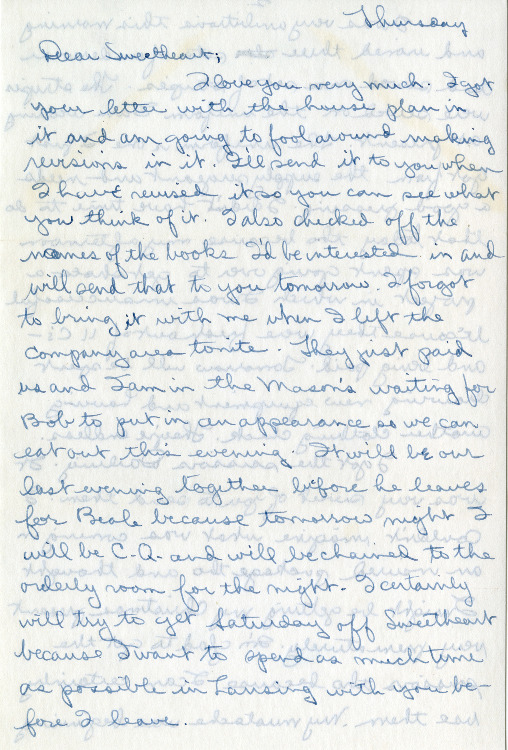 Thursday
Dear Sweetheart;
I love you very much. I got
your letter with the house plan in
it and am going to fool around making
revisions in it. I'll send it to you when
I have revised it so you can see what
you think of it. I also checked off the
names of the books I'd be interested in and
will send that to you tomorrow. I forgot
to bring it with me when I left the
company area tonite. They just paid
us and I am in the Mason's waiting for
Bob to put in an appearance so we can
eat out this evening. It will be our
last evening together before he leaves
for Beale because tomorrow night I
will be C.Q. and will be chained to the
orderly room for the night. I certainly
will try to get Saturday off Sweetheart
because I want to spend as much time
as possible in Lansing with you be-
fore I leave.